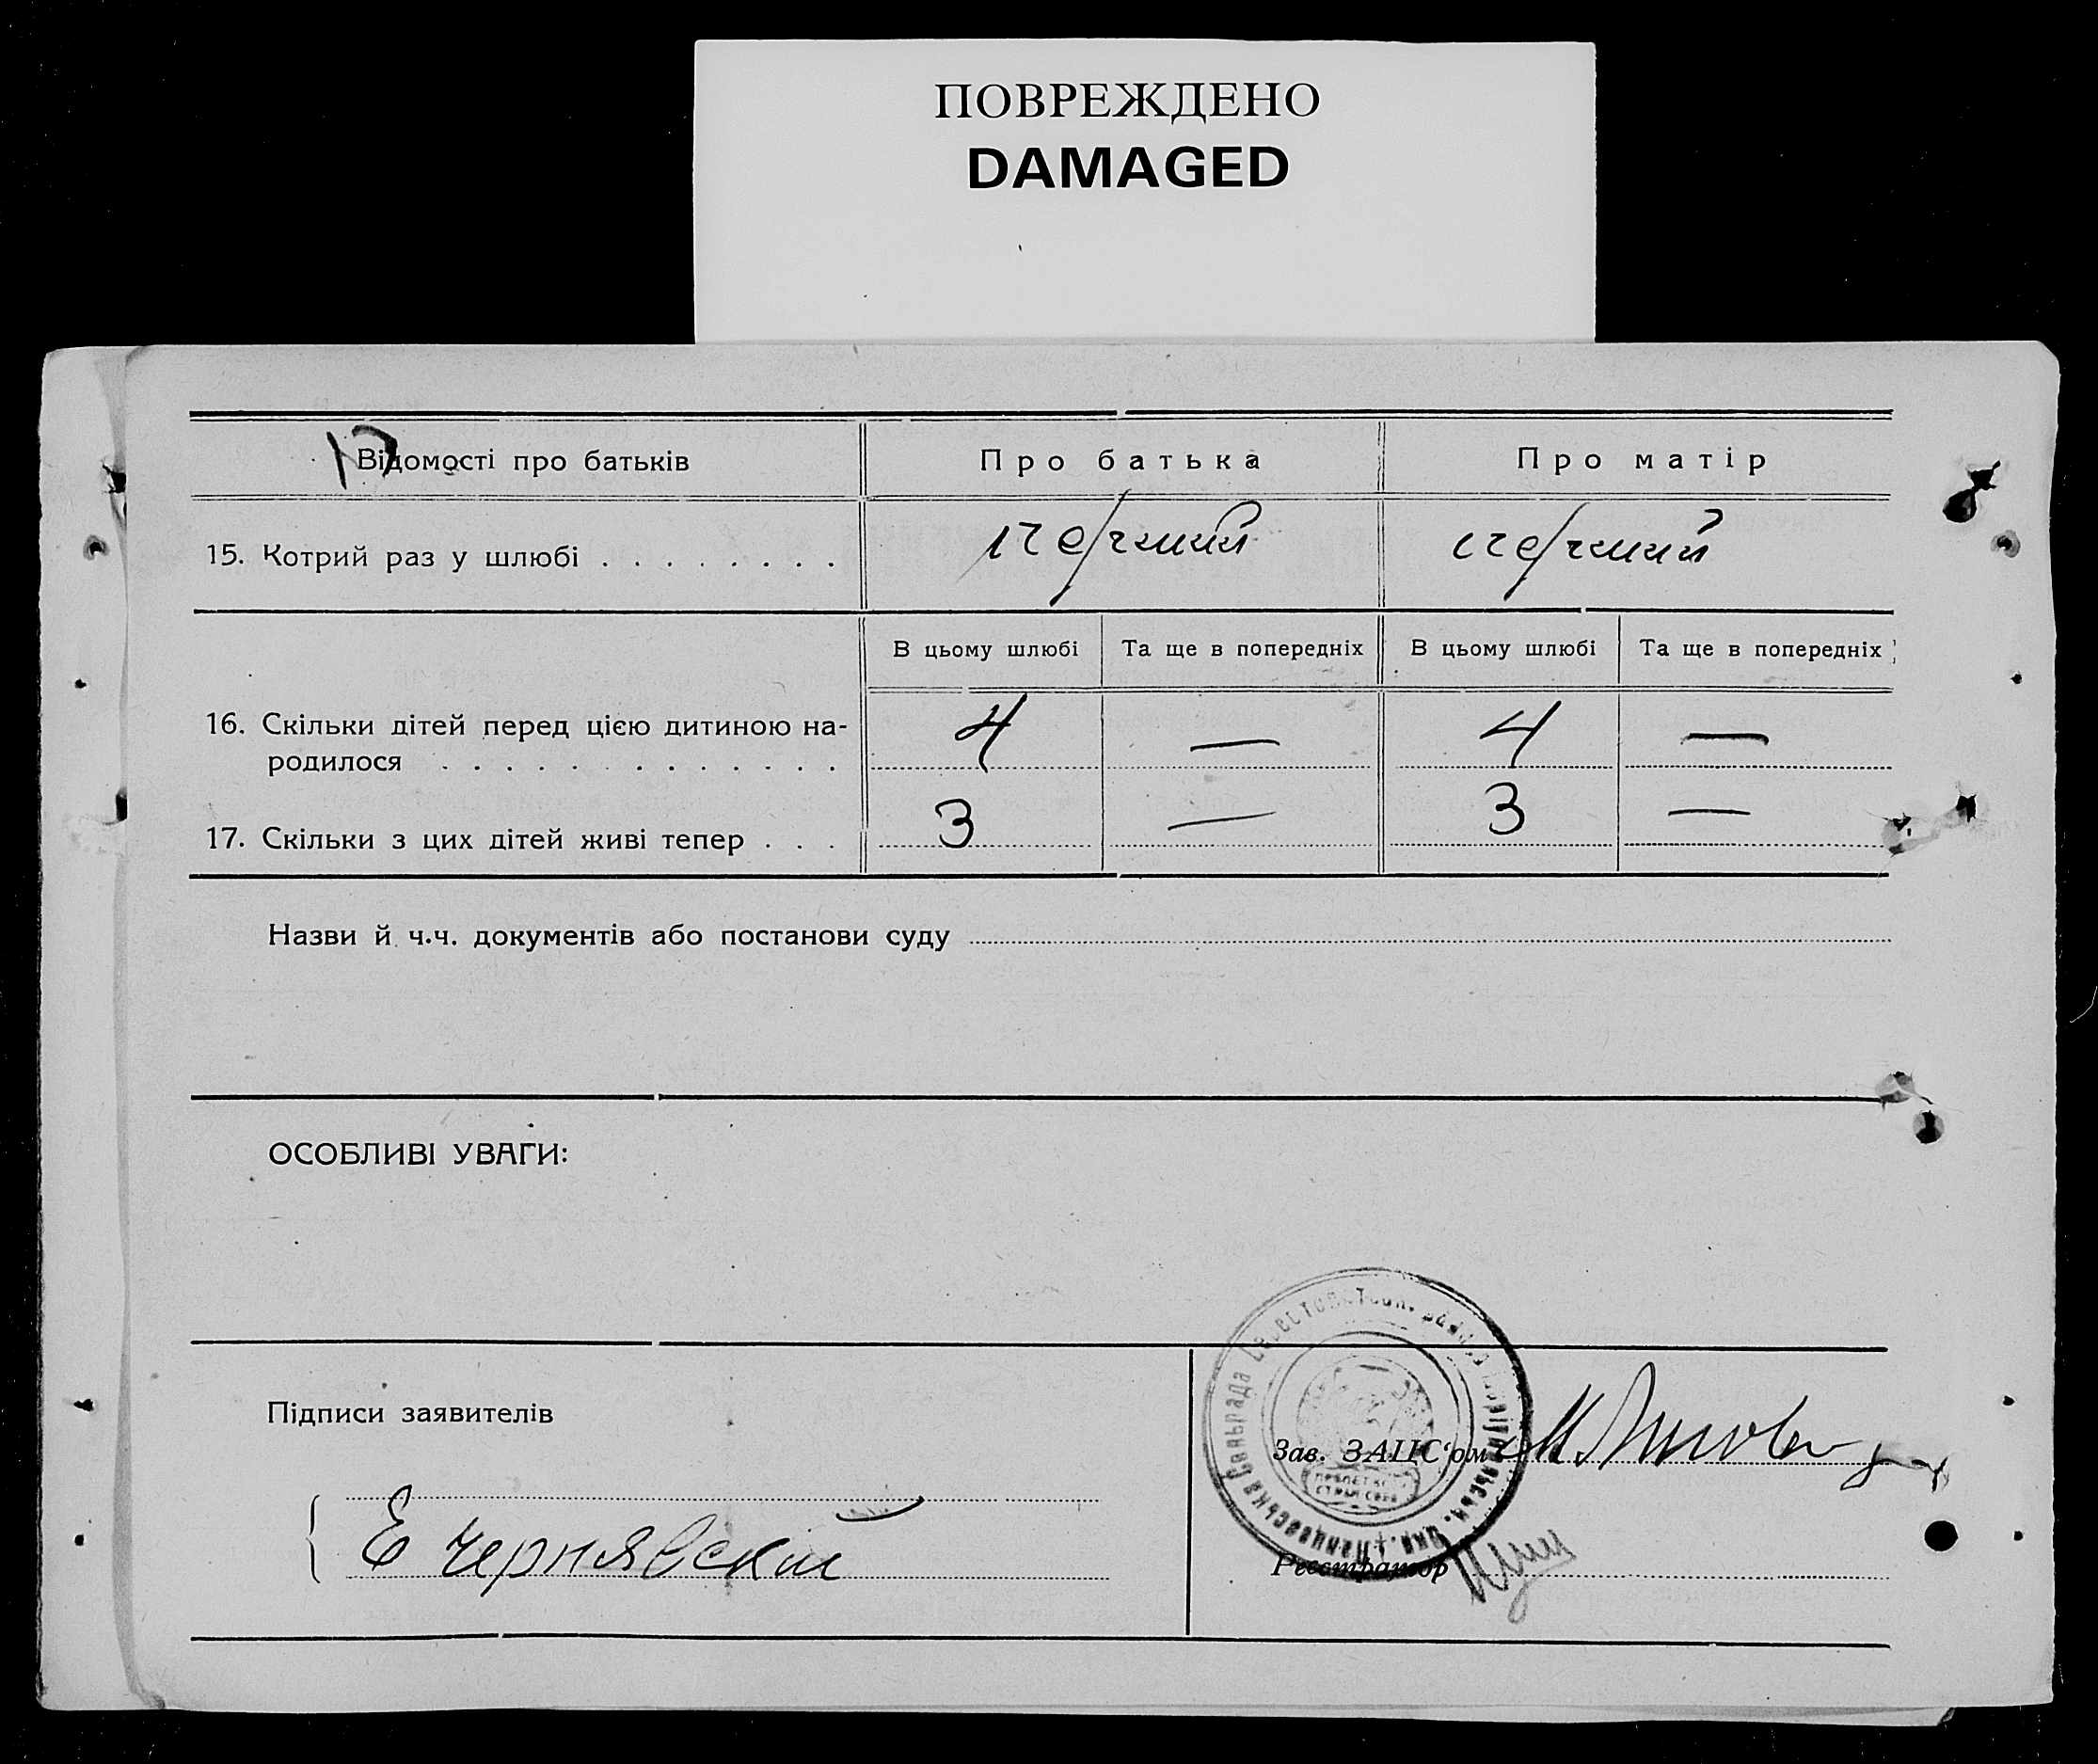 ПОВРЕЖДЕНО
DAMAGED
17
Відомості про батьків
Про батька
Про матір
15. Котрий раз у шлюбі . . . . . . . .
перший
перший
В цьому шлюбі
Та ще в попередніх
В цьому шлюбі
Та ще в попередніх
16. Скільки дітей перед цією дитиною на-
родилося . . . . . . . . . . . . .
4 — 4 —
17. Скільки з цих дітей живі тепер . . .
3 — 3 —
Назви й ч.ч. документів або постанови суду
ОСОБЛИВІ УВАГИ:
Підписи заявителів
Е Чернявский
Зав. ЗАЦС'ом
Реєстратор
Сільрада